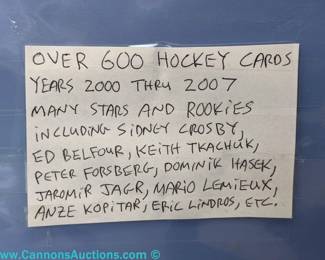 OVER 600 HOCKEY CARDS
YEARS 2000 THRU 2007
MANY STARS AND ROOKIES
INCLUDING SIDNEY CROSBY,
ED BELFOUR, KEITH TKACHUK,
PETER FORSBERG, DOMINIK HASEK,
JAROMIR JAGR, MARIO LEMIEUX,
ANZE KOPITAR, ERIC LINDROS, ETC.
www.CannonsAuctions.com ©